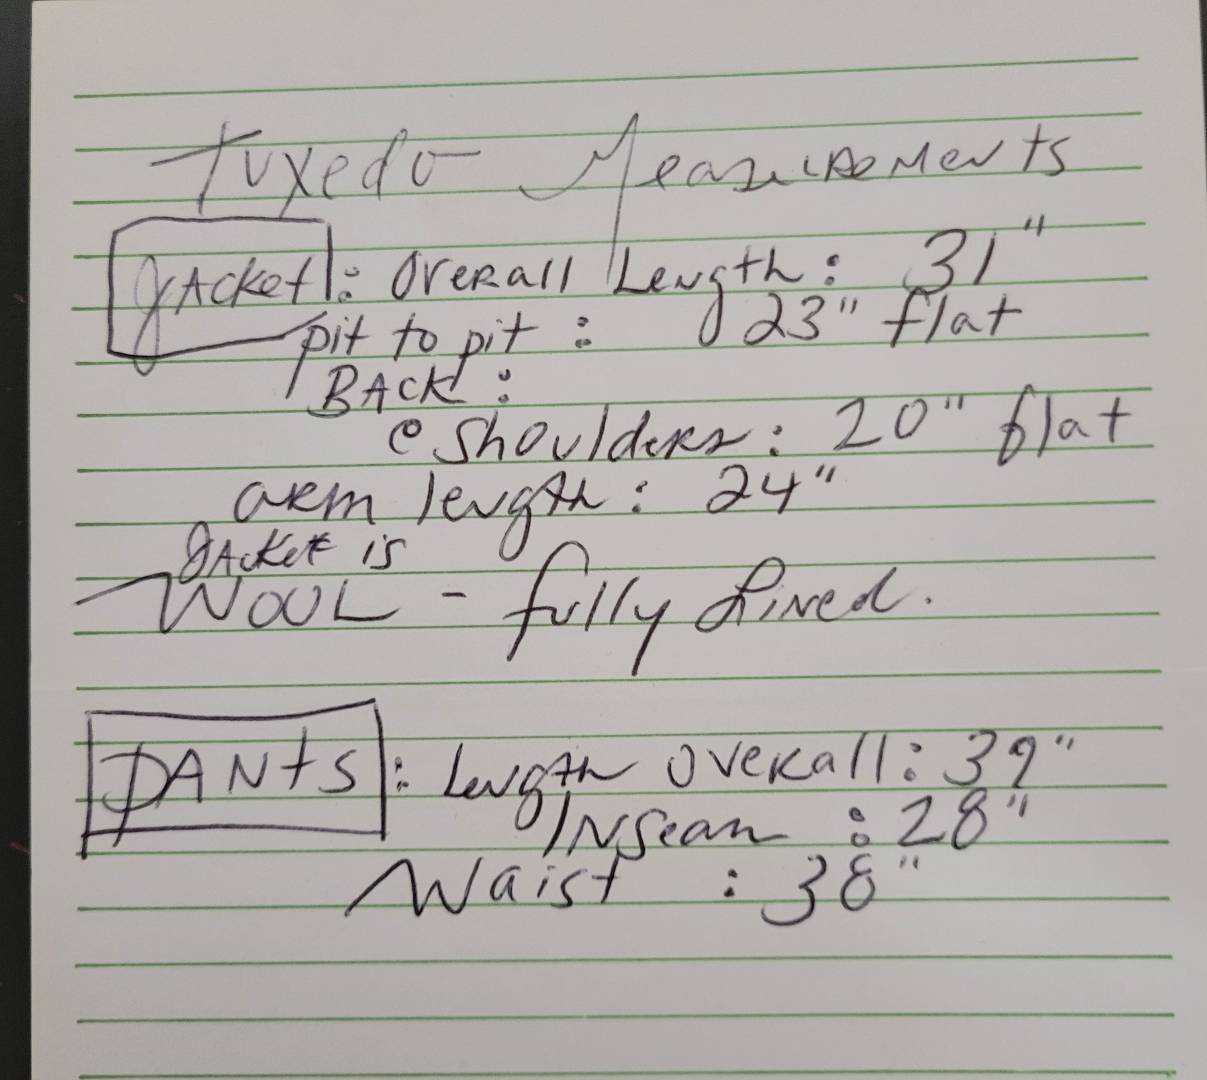 Tuxedo Measurements
Jacket: Overall Length: 31"
pit to pit: 23" flat
BACK:
@ shoulders: 20" flat
arm length: 24"
Jacket is
WOOL - fully Lined.
PANts: Length overall: 39"
INSeam: 28"
Waist: 38"